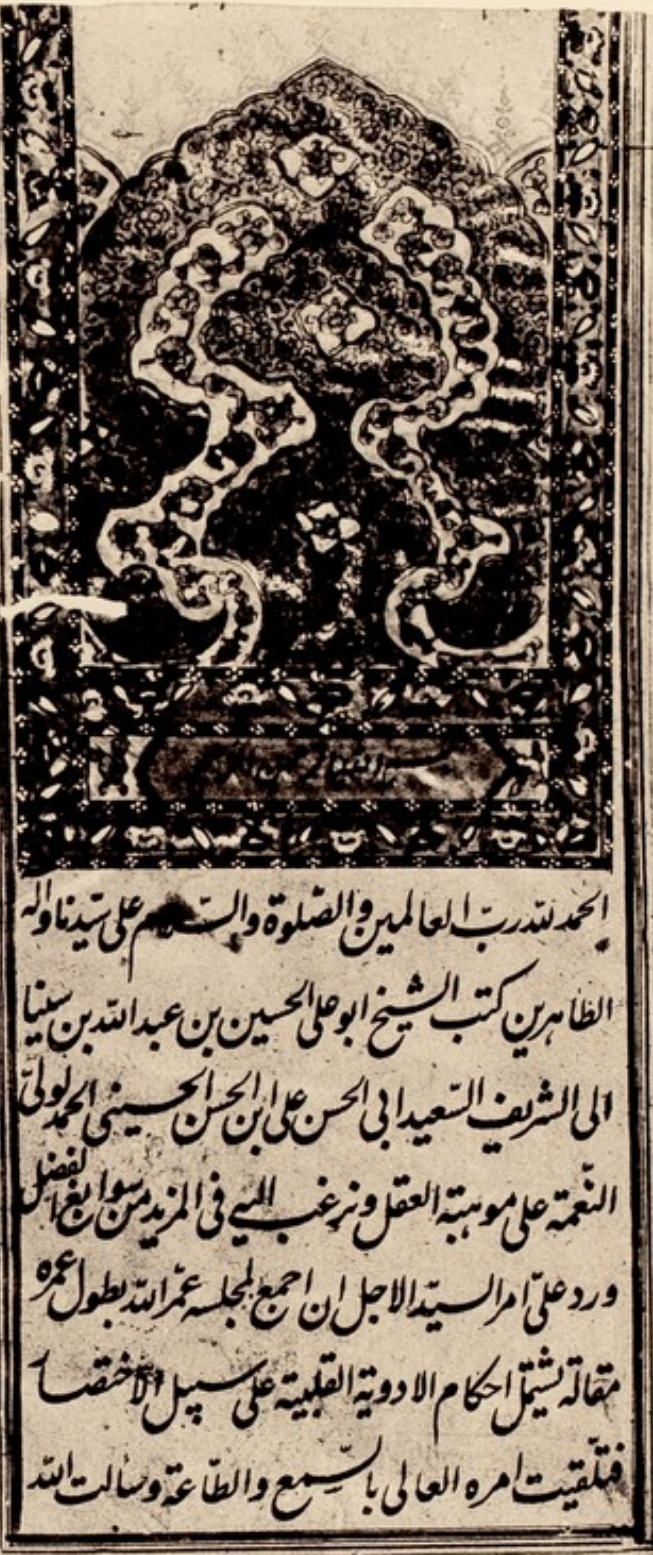 بسم الله الرحمن الرحيم
الحمد لله رب العالمين والصّلوة والسّلام على سيّدنا واله
الطاهرين كتب الشيخ ابو على الحسين بن عبد الله بن سينا
الى الشريف السّعيد ابى الحسن على ابن الحسن الحسينى الحمد لولىّ
النّعمة على موهبته العقل ونرغب اليه فى المزيد من سوابغ الفضل
ورد علىّ امر السيّد الاجل ان اجمع لمجلسه عمّر الله بطول عمره
مقالة تشتمل احكام الادوية القلبية على سبيل الاختصار
فتلقّيت امره العالى بالسّمع والطّاعة وسألت الله